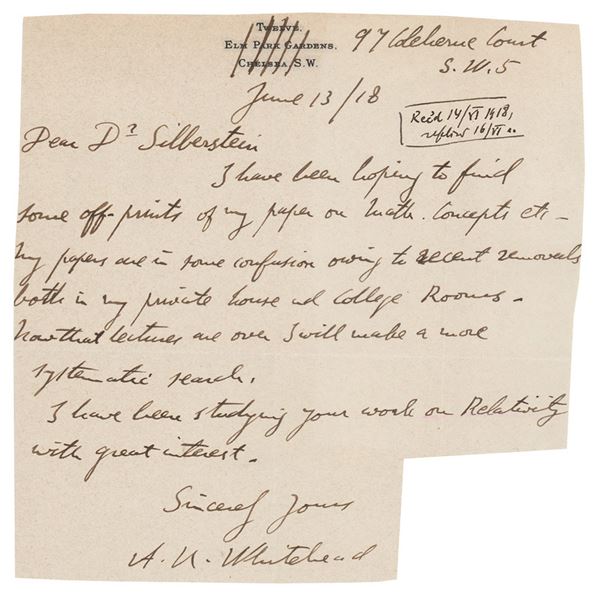 Twelve,
Elm Park Gardens.
Chelsea, S.W.
97 Coleherne Court
S.W.5
June 13/18
Rec'd 14/VI 1918,
16/VI
Dear Dr Silberstein
I have been hoping to find
some off-prints of my paper on Math. Concepts etc –
My papers are in some confusion owing to recent removals
both in my private house and College Rooms –
Now that lectures are over I will make a more
systematic search.
I have been studying your work on Relativity
with great interest –
Sincerely Yours
A. N. Whitehead